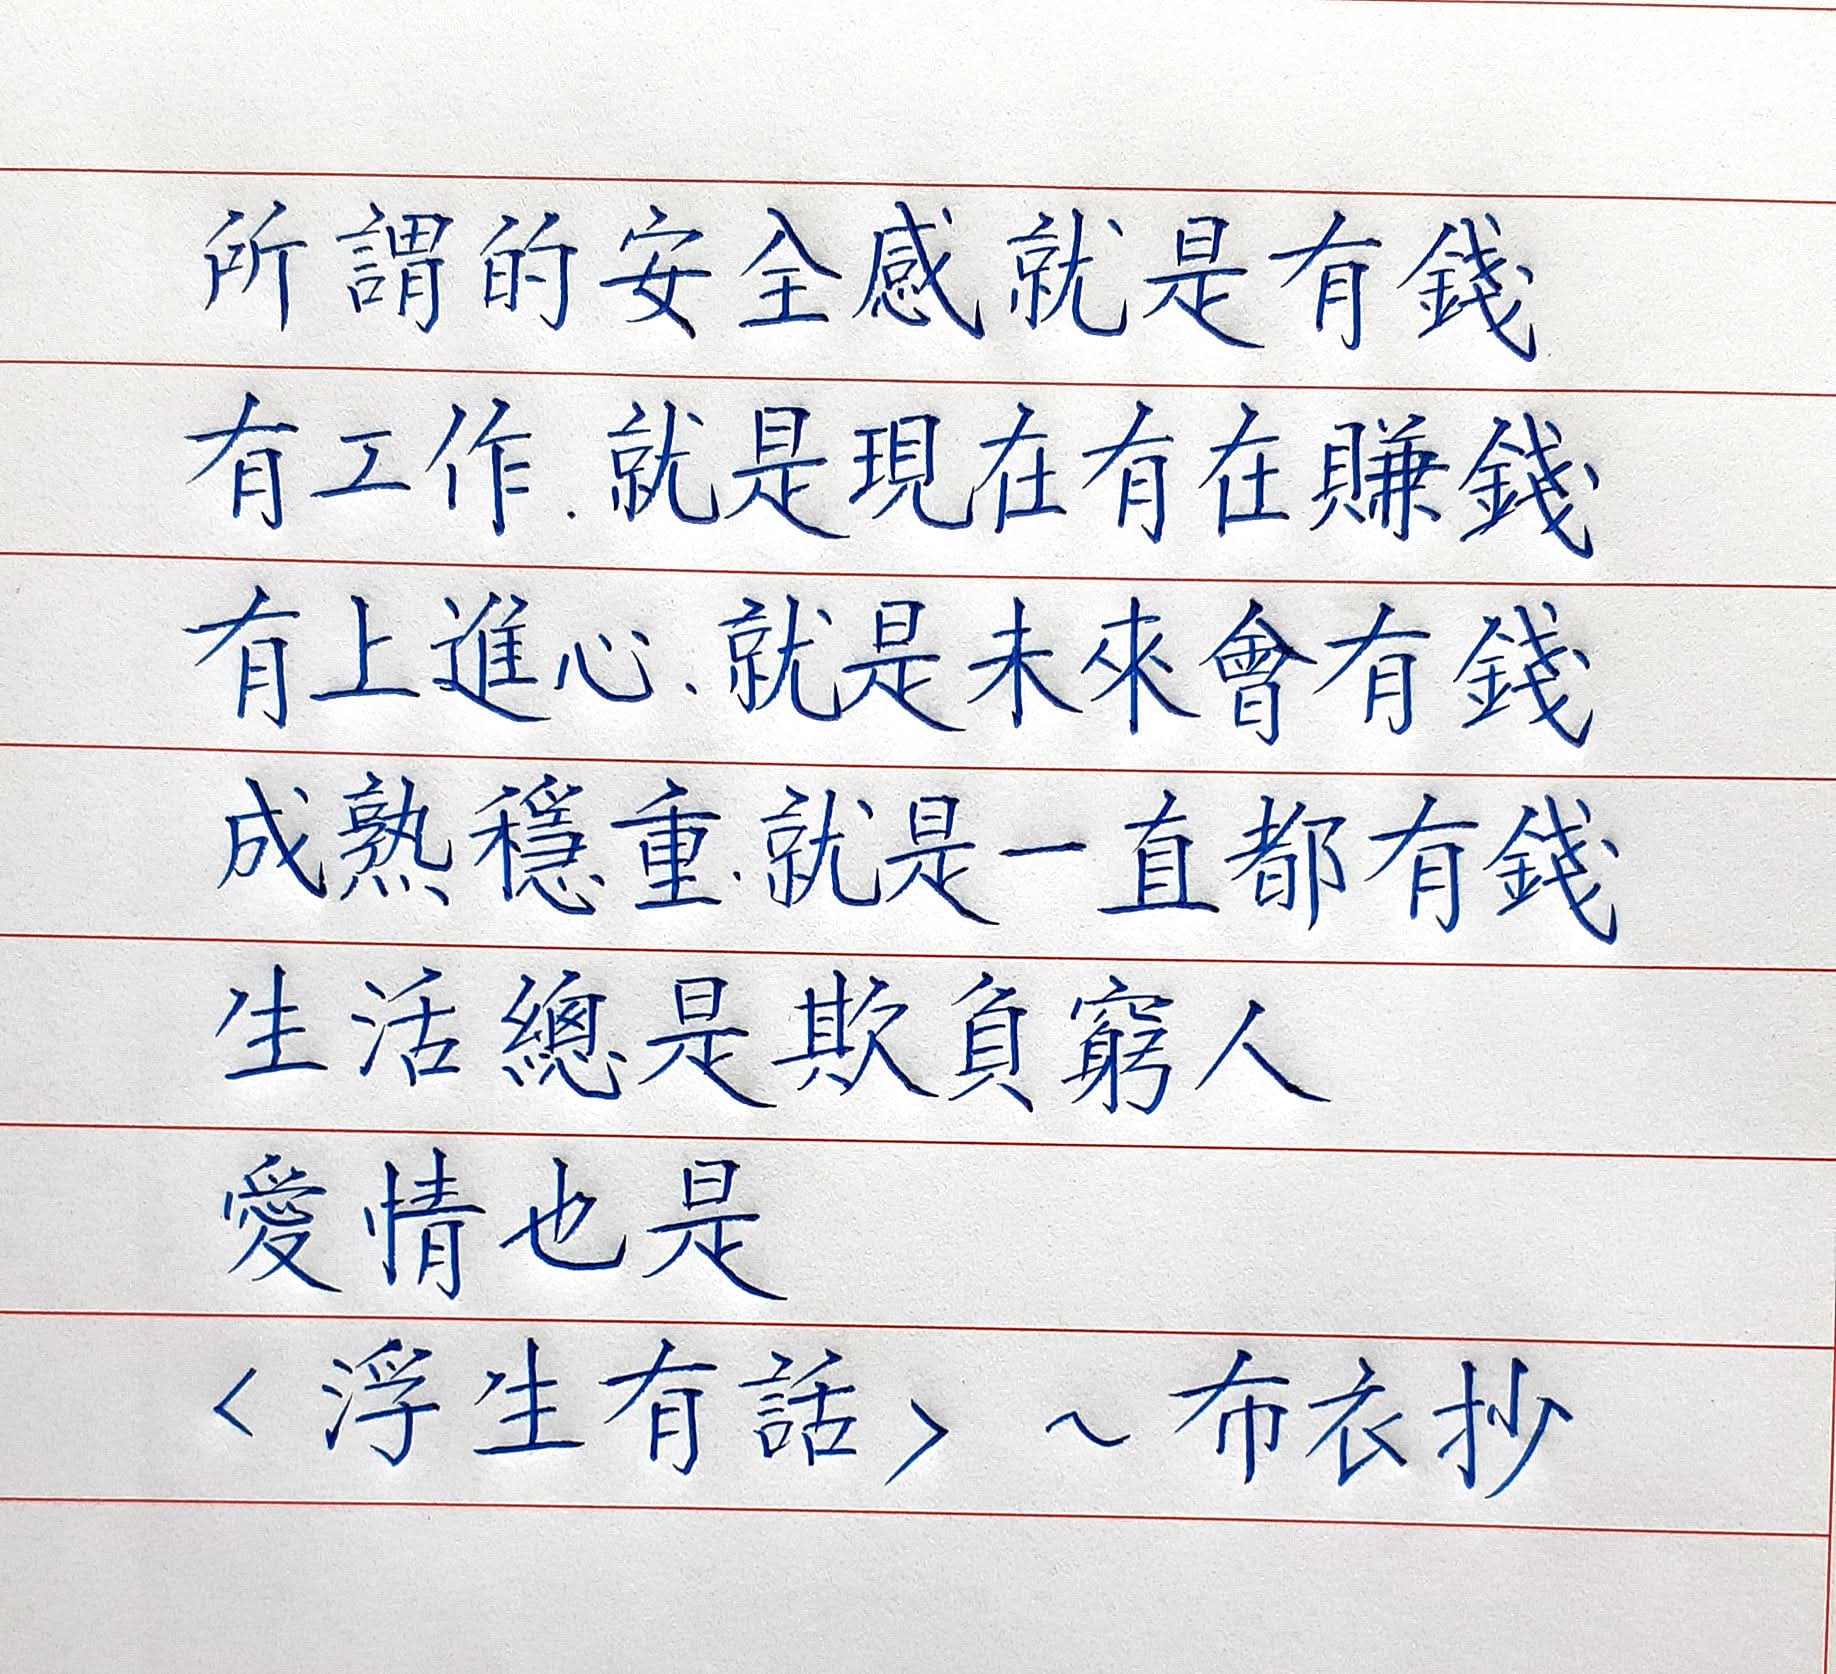 所謂的安全感就是有錢
有工作.就是現在有在賺錢
有上進心.就是未來會有錢
成熟穩重.就是一直都有錢
生活總是欺負窮人
愛情也是
<浮生有話> ~布衣抄